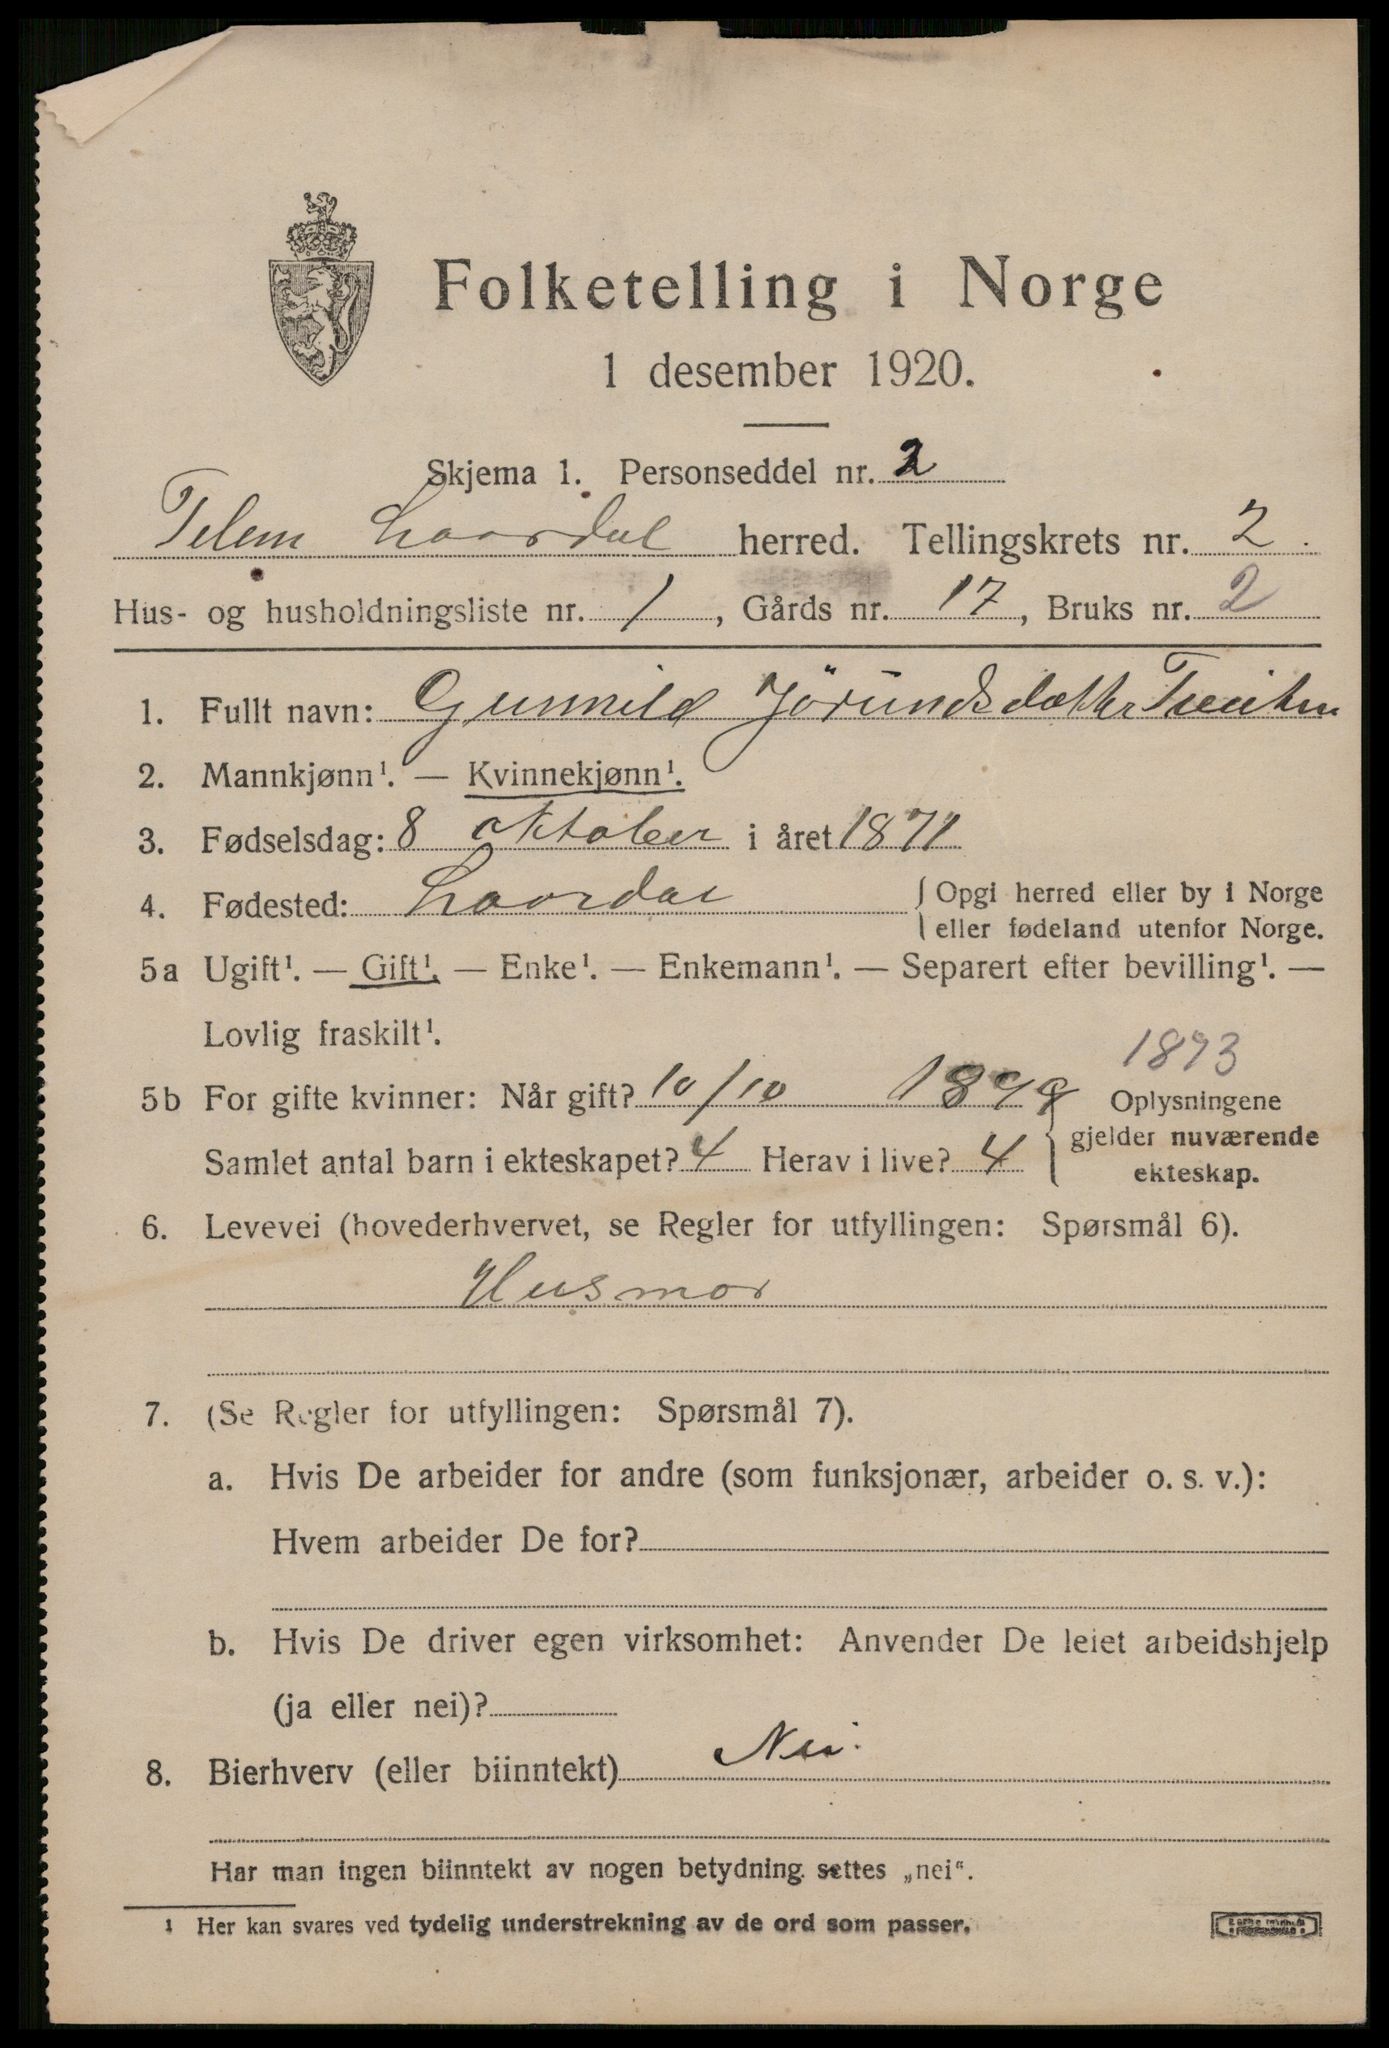 Folketelling i Norge
1 desember 1920.
Skjema 1. Personseddel nr. 2
Telem Laardal herred. Tellingskrets nr. 2.
Hus- og husholdningsliste nr. 1, Gårds nr. 17, Bruks nr. 2
1. Fullt navn: Gunnild Jörundsdatter Tveiten
2. Mannkjønn¹. — Kvinnekjønn¹.
3. Fødselsdag: 8 oktober i året 1871
4. Fødested: Laardal { Opgi herred eller by i Norge
eller fødeland utenfor Norge.
5a Ugift¹. — Gift¹. — Enke¹. — Enkemann¹. — Separert efter bevilling¹. —
Lovlig fraskilt¹.
1893
5b For gifte kvinner: Når gift? 10/10 Oplysningene
gjelder nuværende
Samlet antal barn i ekteskapet? 4 Herav i live? 4
ekteskap.
6. Levevei (hovederhvervet, se Regler for utfyllingen: Spørsmål 6).
Husmor
7. (Se Regler for utfyllingen: Spørsmål 7).
a. Hvis De arbeider for andre (som funksjonær, arbeider o. s. v.):
Hvem arbeider De for?
b. Hvis De driver egen virksomhet: Anvender De leiet arbeidshjelp
(ja eller nei)?
8. Bierhverv (eller biinntekt) Nei.
Har man ingen biinntekt av nogen betydning settes „nei“.
1 Her kan svares ved tydelig understrekning av de ord som passer.